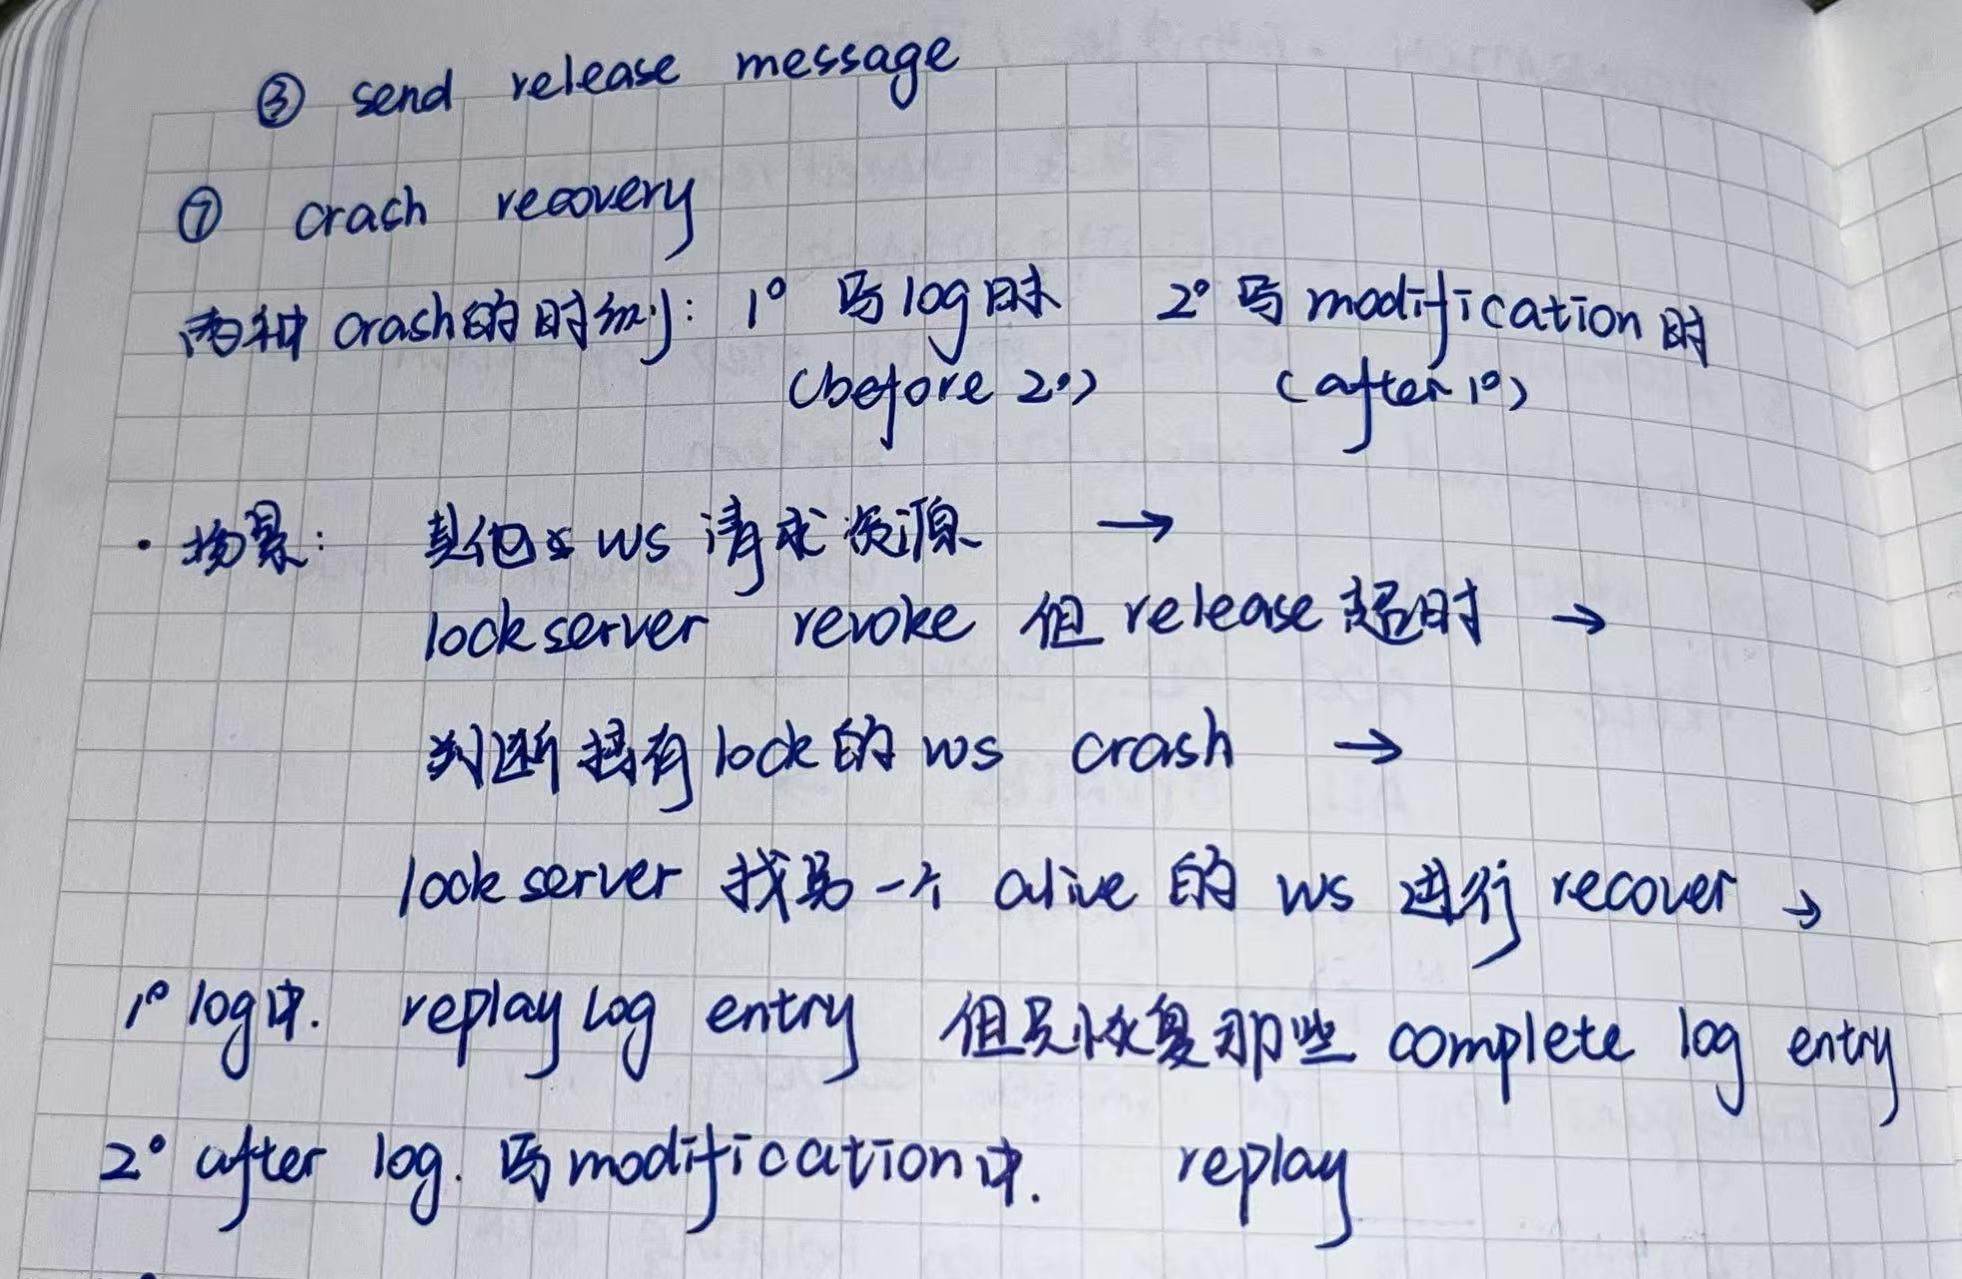 ③ send release message
⑦ crach recovery
两种 crash的时刻: 1° 写log时 2° 写modification时
(before 2°) (after 1°)
· 场景: 其他 ws 请求资源 →
lock server revoke 但 release 超时 →
判断持有lock的 ws crash →
lock server 找另一个 alive 的 ws 进行 recover →
1° log中. replay log entry 但只恢复那些 complete log entry
2° after log. 写modification中. replay